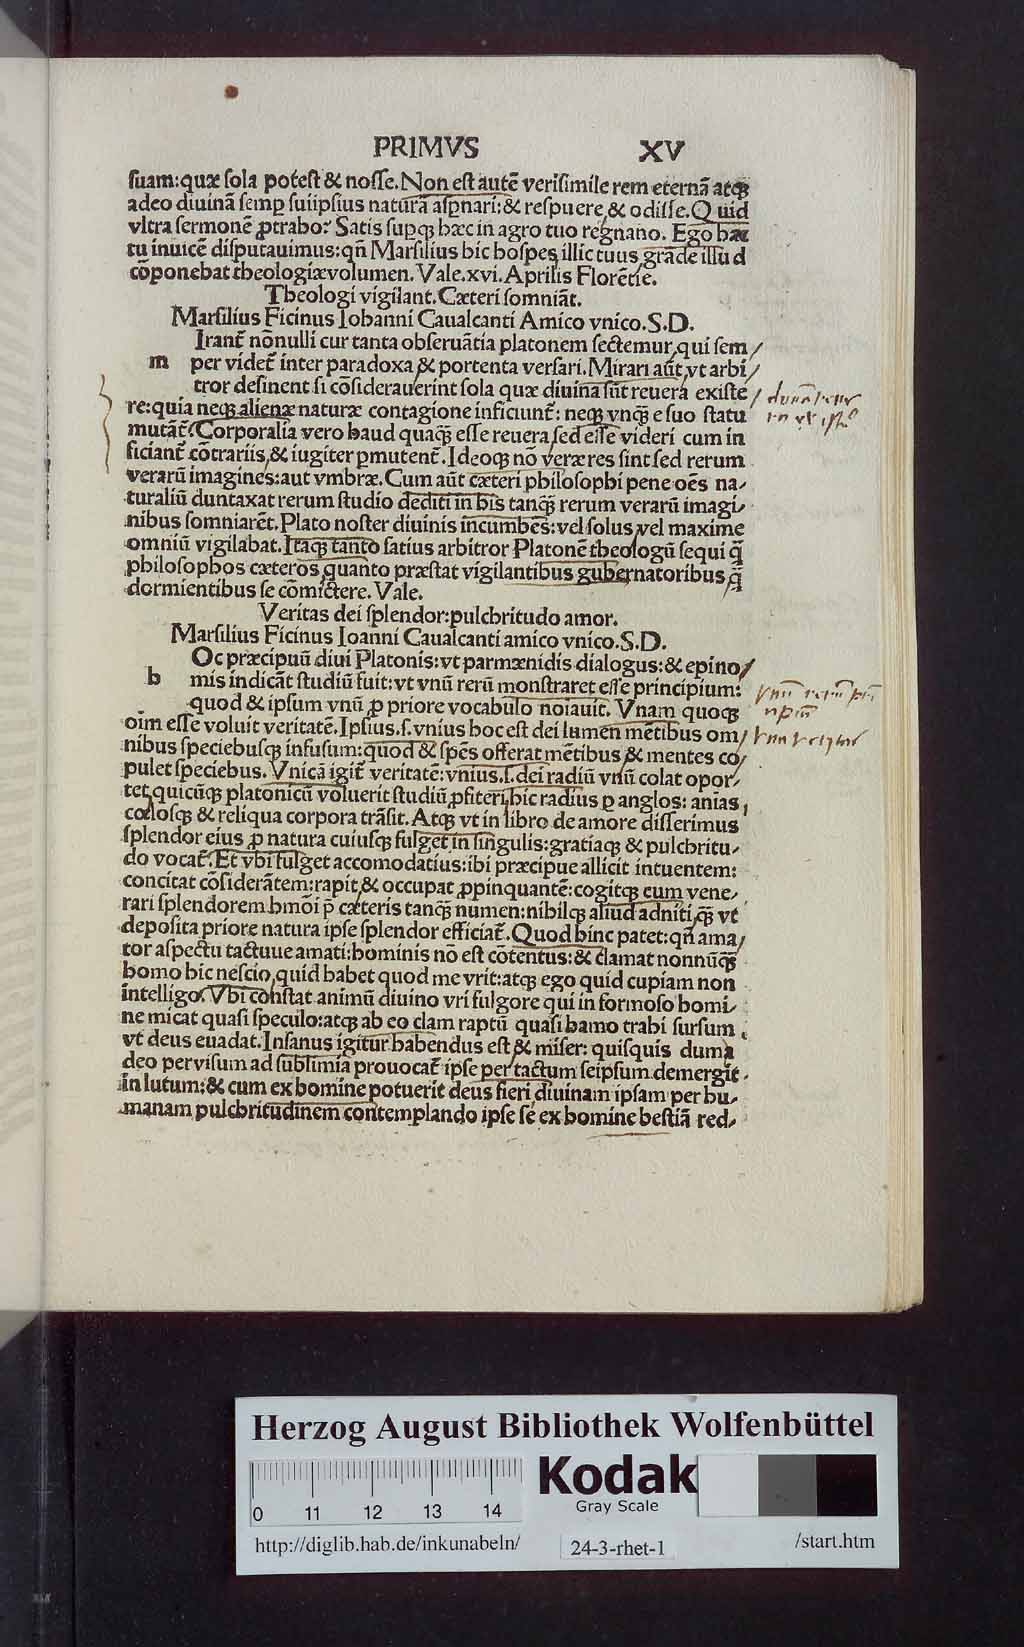 PRIMVS XV
suam:quæ sola potest & nosse.Non est autē verisimile rem eternā atq;
adeo diuinā semꝑ suiipsius naturā asꝑnari:& respuere & odisse.Quid
vltra sermonē ꝓtrabo? Satis supq; hæc in agro tuo regnano. Ego hæc
tu inuicē disputauimus:qñ Marsilius hic hospes illic tuus grāde illud
cōponebat theologiæ volumen. Vale.xvi.Aprilis Florētie.
Theologi vigilant.Cæteri somniāt.
Marsilius Ficinus Iohanni Caualcanti Amico vnico.S.D.
Irant̄ nōnulli cur tanta obseruātia platonem sectemur,qui sem/
m per videt̄ inter paradoxa & portenta versari.Mirari aūt,vt arbi/
tror desinent si cōsiderauerint sola quæ diuina sūt reuera existe/
re:quia neq; alienæ naturæ contagione inficiunt̄: neq; vnq̄; e suo statu
mutāt̄.Corporalia vero haud quaq̄; esse reuera sed esse videri cum in
ficiant̄ cōtrariis,& iugiter ꝑmutent̄.Ideoq; nō veræ res sint sed rerum
verarū imagines:aut vmbræ.Cum aūt cæteri philosophi pene oēs na/
turaliū duntaxat rerum studio dediti in his tanq̄; rerum verarū imagi/
nibus somniarēt.Plato noster diuinis incumbēs:vel solus vel maxime
omniū vigilabat.Itaq; tanto satius arbitror Platonē theologū sequi q̄
philosophos cæteros quanto præstat vigilantibus gubernatoribus q̄
dormientibus se cōmictere.Vale.
Veritas dei splendor:pulchritudo amor.
Marsilius Ficinus Ioanni Caualcanti amico vnico.S.D.
Oc præcipuū diui Platonis:vt parmænidis dialogus:& epino/
h mis indicāt studiū fuit:vt vnū rerū monstraret esse principium:
quod & ipsum vnū ꝓ priore vocabulo noiauit. Vnam quoq;
oim esse voluit veritatē.Ipsius.s.vnius hoc est dei lumen mētibus om/
nibus speciebusq; infusum:quod & spēs offerat mētibus & mentes co/
pulet speciebus.Vnicā igit̄ veritatē:vnius.s.dei radiū vnū colat opor/
tet,quicūq; platonicū voluerit studiū ꝓfiteri,hic radius ꝑ anglos: anīas
cœlosq; & reliqua corpora trāsit.Atq; vt in libro de amore disserimus
splendor eius ꝓ natura cuiusq; fulget in singulis:gratiaq; & pulchritu/
do vocat̄.Et vbi fulget accomodatius:ibi præcipue allicit intuentem:
concitat cōsiderātem:rapit & occupat ꝓpinquantē:cogitq; eum vene/
rari splendorem hmōi p̄ cæteris tanq̄; numen:nihilq; aliud adniti,q̄; vt
deposita priore natura ipse splendor efficiat̄.Quod hinc patet:qñ ama/
tor aspectu tactuue amati:hominis nō est cōtentus:& clamat nonnūq̄;
homo hic nescio,quid habet quod me vrit:atq; ego quid cupiam non
intelligo.Vbi constat animū diuino vri fulgore qui in formoso homi/
ne micat quasi speculo:atq; ab eo clam raptū quasi hamo trahi sursum
vt deus euadat.Insanus igitur habendus est & miser: quisquis duma
deo per visum ad sublimia prouocat̄ ipse per tactum seipsum demergit
in lutum:& cum ex homine potuerit deus fieri diuinam ipsam per hu/
manam pulchritudinem contemplando ipse se ex homine bestiā red/
Herzog August Bibliothek Wolfenbüttel
0 11 12 13 14
Kodak
Gray Scale
http://diglib.hab.de/inkunabeln/
24-3-rhet-1
/start.htm